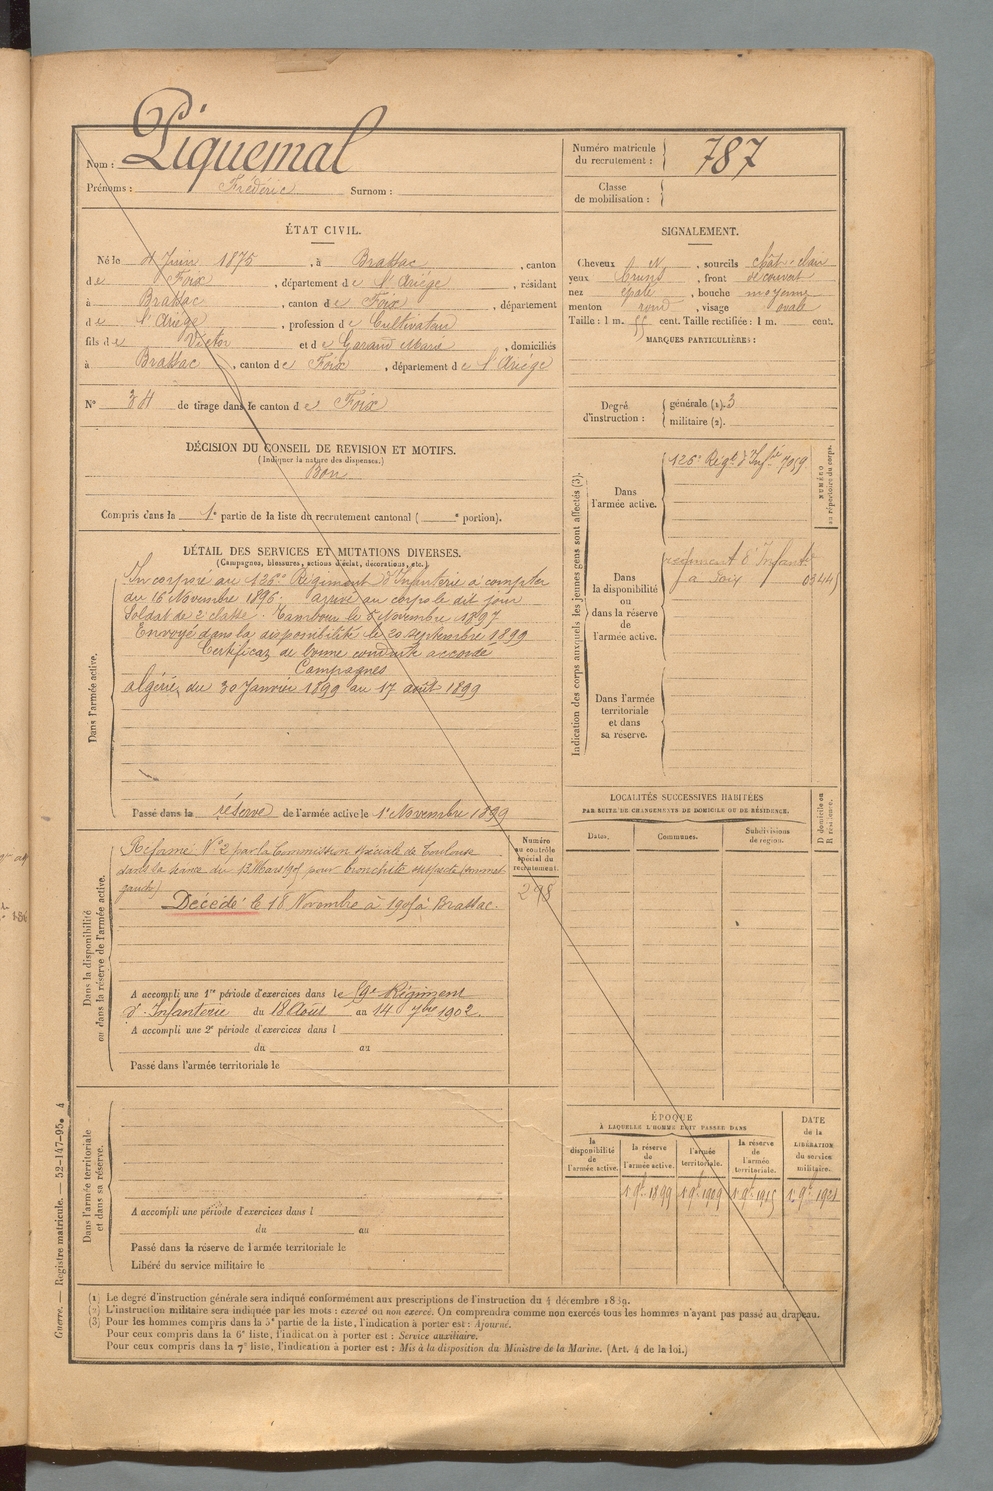 Nom : Piquemal
Prénoms : Frédéric Surnom :
Numéro matricule du recrutement : 787
Classe de mobilisation :
ÉTAT CIVIL.
Né le 4 Juin 1875, à Brassac, canton
de Foix, département de l'Ariège, résidant
à Brassac, canton de Foix, département
de l'Ariège, profession de Cultivateur
fils de Victor et de Garaud Marie, domiciliés
à Brassac, canton de Foix, département de l'Ariège
N° 34 de tirage dans le canton de Foix
SIGNALEMENT.
Cheveux, sourcils chât. clair
yeux bruns, front découvert
nez épaté, bouche moyenne
menton rond, visage ovale
Taille : 1 m. 55 cent. Taille rectifiée : 1 m. cent.
MARQUES PARTICULIÈRES :
Degré d'instruction : générale (1). 3
militaire (2).
DÉCISION DU CONSEIL DE REVISION ET MOTIFS.
(Indiquer la nature des dispenses.)
Bon
Compris dans la 1e partie de la liste du recrutement cantonal ( e portion).
DÉTAIL DES SERVICES ET MUTATIONS DIVERSES.
(Campagnes, blessures, actions d'éclat, décorations, etc.)
Dans l'armée active.
Incorporé au 126e Régiment d'Infanterie à compter
du 16 Novembre 1896. arrivé au corps le dit jour
Soldat de 2e classe. Tambour le 6 Novembre 1897
Envoyé dans la disponibilité le 20 septembre 1899
Certificat de bonne conduite accordé
Campagnes
algérie, du 30 Janvier 1899 au 17 août 1899
Passé dans la réserve de l'armée active le 1er Novembre 1899
Indication des corps auxquels les jeunes gens sont affectés (3).
NUMÉRO au répertoire du corps.
Dans l'armée active.
126e Régt d'Infrie 7059
Dans la disponibilité ou dans la réserve de l'armée active.
régiment d'Infante
à Foix 03445
Dans l'armée territoriale et dans sa réserve.
Dans la disponibilité ou dans la réserve de l'armée active.
Numéro au contrôle spécial du recrutement.
298
Réformé N°2 par la Commission spéciale de Toulouse
dans sa séance du 13 Mars 1905 pour bronchite suspecte (sommet
gauche)
Décédé le 18 Novembre à 1905 à Brassac.
A accompli une 1re période d'exercices dans le 59e Régiment
d'Infanterie du 18 Août au 14 7bre 1902.
A accompli une 2e période d'exercices dans l
du au
Passé dans l'armée territoriale le
LOCALITÉS SUCCESSIVES HABITÉES
PAR SUITE DE CHANGEMENTS DE DOMICILE OU DE RÉSIDENCE.
Dates. Communes. Subdivisions de region. D domicile ou R résidence.
ÉPOQUE
À LAQUELLE L'HOMME DOIT PASSER DANS
la disponibilité de l'armée active. la réserve de l'armée active. l'armée territoriale. la réserve de l'armée territoriale. DATE de la LIBÉRATION du service militaire.
1 9bre 1899 1 9bre 1909 1 9bre 1915 1er 9bre 1921
Dans l'armée territoriale et dans sa réserve.
A accompli une période d'exercices dans l
du au
Passé dans la réserve de l'armée territoriale le
Libéré du service militaire le
(1) Le degré d'instruction générale sera indiqué conformément aux prescriptions de l'instruction du 4 décembre 1889.
(2) L'instruction militaire sera indiquée par les mots : exercé ou non exercé. On comprendra comme non exercés tous les hommes n'ayant pas passé au drapeau.
(3) Pour les hommes compris dans la 5e partie de la liste, l'indication à porter est : Ajourné.
Pour ceux compris dans la 6e liste, l'indication à porter est : Service auxiliaire.
Pour ceux compris dans la 7e liste, l'indication à porter est : Mis à la disposition du Ministre de la Marine. (Art. 4 de la loi.)
Guerre. — Registre matricule. — 52-147-95. 4